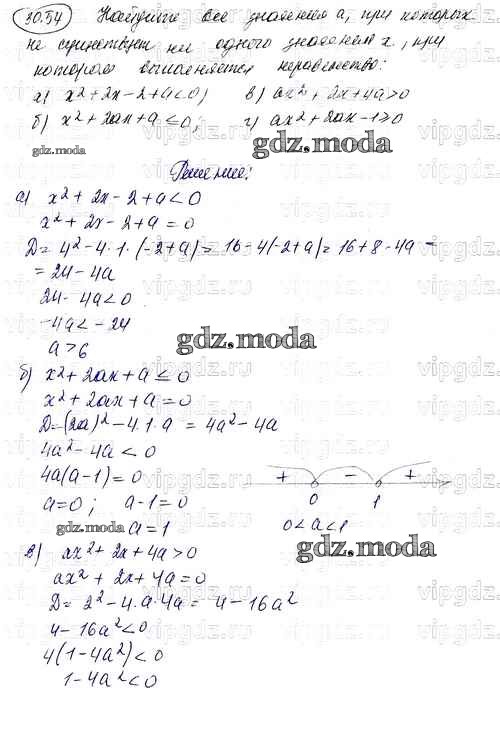 30.54 Найдите все значения a, при которых
не существует ни одного значения x, при
котором выполняется неравенство:
а) x²+2x-2+a<0; в) ax²+2x+4a>0
б) x²+2ax+a≤0; г) ax²+2ax-1≥0
gdz.moda
gdz.moda
Решение:
а) x²+2x-2+a<0
x²+2x-2+a=0
D=4²-4·1·(-2+a)=16-4(-2+a)=16+8-4a=
=24-4a
24-4a<0
-4a<-24
gdz.moda
a>6
б) x²+2ax+a≤0
x²+2ax+a=0
D=(2a)²-4·1·a=4a²-4a
4a²-4a<0
4a(a-1)=0
+ - +
a=0; a-1=0
0 1
gdz.moda
a=1
0<a<1
gdz.moda
в) ax²+2x+4a>0
ax²+2x+4a=0
D=2²-4·a·4a=4-16a²
4-16a²<0
4(1-4a²)<0
1-4a²<0